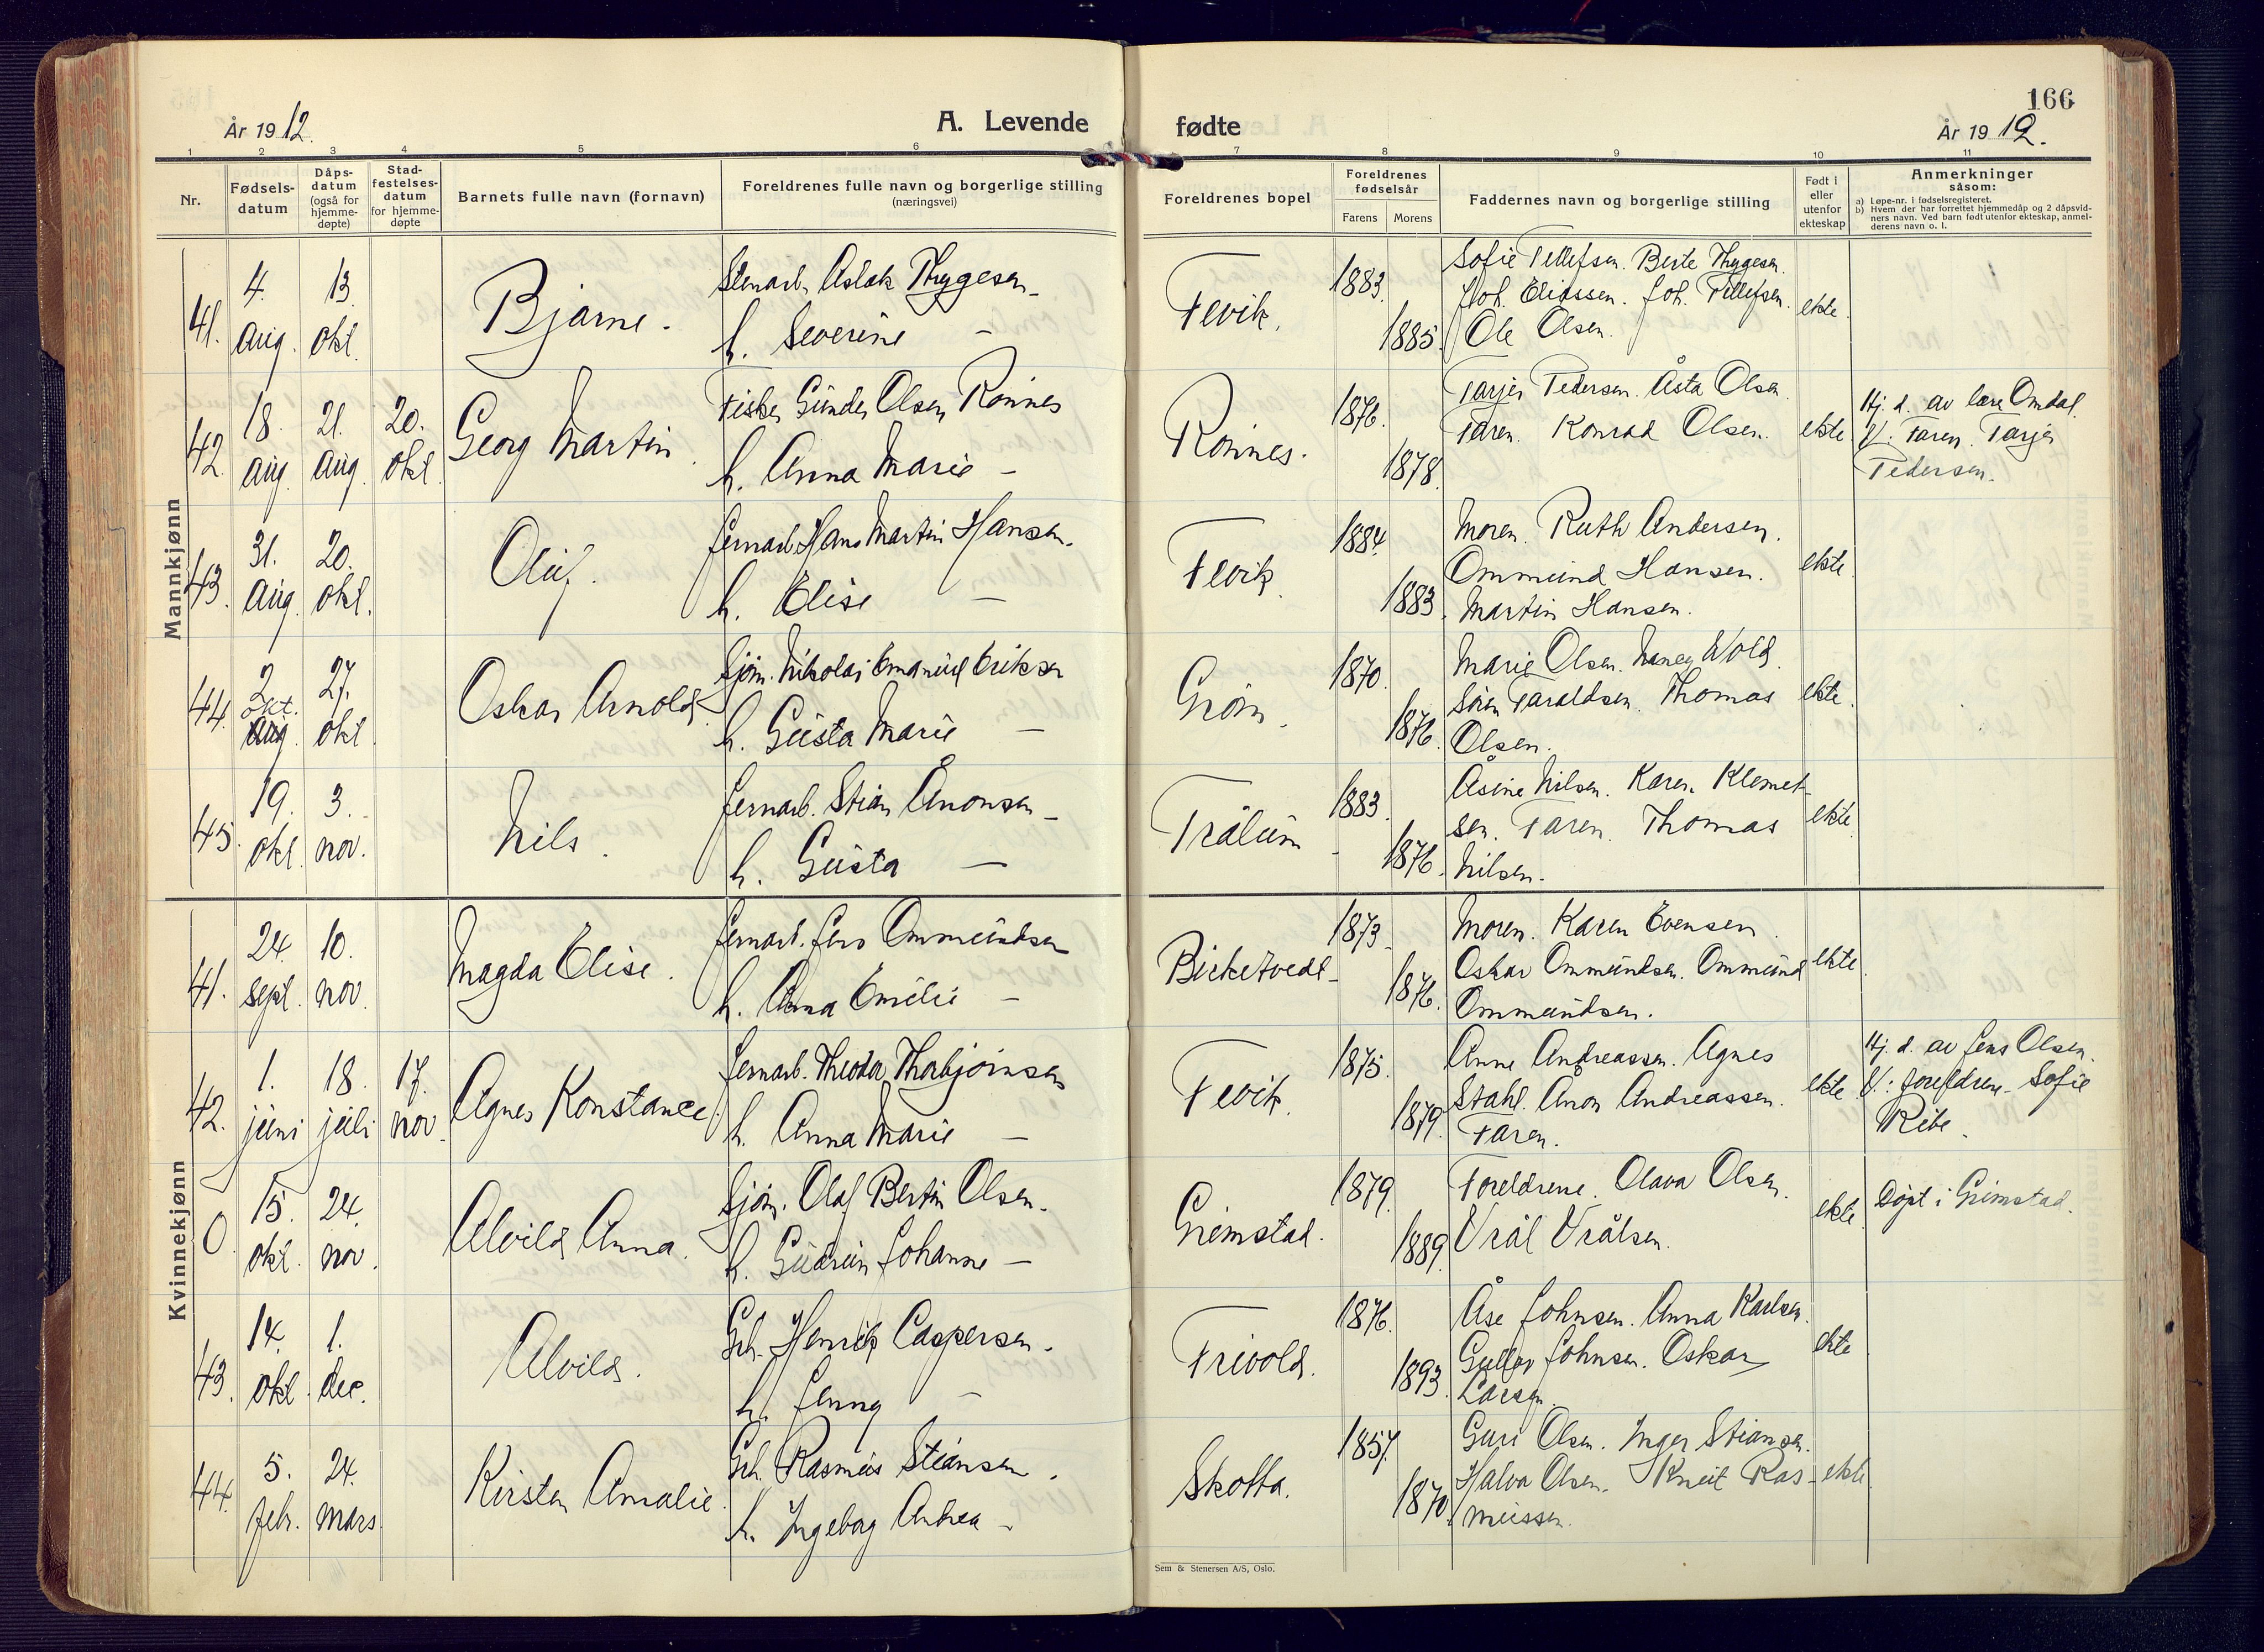 166
År 1912.
A. Levende fødte
År 1912.
1 2 3 4 5 6 7 8 9 10 11
Nr.
Fødsels-
datum
Dåps-
datum
(også for
hjemme-
døpte)
Stad-
festelses-
datum
for hjemme-
døpte
Barnets fulle navn (fornavn)
Foreldrenes fulle navn og borgerlige stilling
(næringsvei)
Foreldrenes bopel
Foreldrenes
fødselsår
Farens Morens
Faddernes navn og borgerlige stilling
Født i
eller
utenfor
ekteskap
Anmerkninger
såsom:
a) Løpe-nr. i fødselsregisteret.
b) Hvem der har forrettet hjemmedåp og 2 dåpsvid-
ners navn. Ved barn født utenfor ekteskap, anmel-
derens navn o. l.
Mannkjønn
41. 4. aug. 13. okt. Bjarne.
Stenarb. Aslak Thygesen
h. Severine —
Fevik. 1883. 1885.
Sofie Tellefsen. Berte Thygesen.
Joh. Eliassen. Joh. Tellefsen.
Ole Olsen.
ekte.
42. 18. aug. 21. aug. 20. okt. Georg Martin.
Fisker Gunder Olsen Rønnes
h. Anna Marie —
Rønnes. 1876. 1878.
Tarjer Pedersen. Åsta Olsen.
Faren. Konrad Olsen.
ekte.
Hj. d. av lære Omdal.
V: Faren. Tarjer
Pedersen.
43. 31. aug. 20. okt. Oluf.
Jernarb. Hans Martin Hansen.
h. Elise —
Fevik. 1884. 1883.
Moren. Ruth Andersen.
Ommund Hansen.
Martin Hansen.
ekte.
44. 2. okt. aug. 27. okt. Oskar Arnold.
Sjøm. Nikolai Emanuel Eriksen
h. Gusta Marie —
Grøm. 1870. 1876.
Marie Olsen. Nancy Wold.
Søren Taraldsen. Thomas
Olsen.
ekte.
45. 19. okt. 3. nov. Nils.
Jernarb. Stian Ånonsen
h. Gusta —
Trålum 1883. 1876.
Åsine Nilsen. Karen Klemet-
sen. Faren. Thomas
Nilsen.
ekte.
Kvinnekjønn
41. 24. sept. 10. nov. Magda Elise.
Jernarb. Jens Ommundsen
h. Anna Emilie —
Birketvedt 1873. 1876.
Moren. Karen Evensen.
Oskar Ommundsen. Ommund
Ommundsen.
ekte.
42. 1. juni 18. juli 17. nov. Agnes Konstance.
Jernarb. Theodor Thorbjørnsen
h. Anna Marie —
Fevik. 1875. 1879.
Anne Andreassen. Agnes
Stahl. Anon Andreassen.
Faren.
ekte
Hj. d. av Jens Olsen.
V: foreldrene. Sofie
Ribe.
0. 15. okt. 24. nov. Alvild Anna.
Sjøm. Olaf Bertin Olsen.
h. Gudrun Johanne —
Grimstad. 1879. 1889.
Foreldrene. Olava Olsen.
Vrål Vrålsen.
ekte.
Døpt i Grimstad.
43. 14. okt. 1. dec. Alvild.
Gch. Henrik Caspersen.
h. Jenny —
Frivold. 1876. 1893.
Åse Johnsen. Anna Karlsen.
Johnsen. Oskar
Larsen.
ekte
44. 5. febr. 24. mars Kirsten Amalie.
Gch. Rasmus Stiansen.
h. Ingeborg Andrea —
Skotta. 1857. 1870.
Guri Olsen. Inger Stiansen.
Halva Olsen. Knut Ras-
mussen.
ekte.
Sem & Stenersen A/S, Oslo.